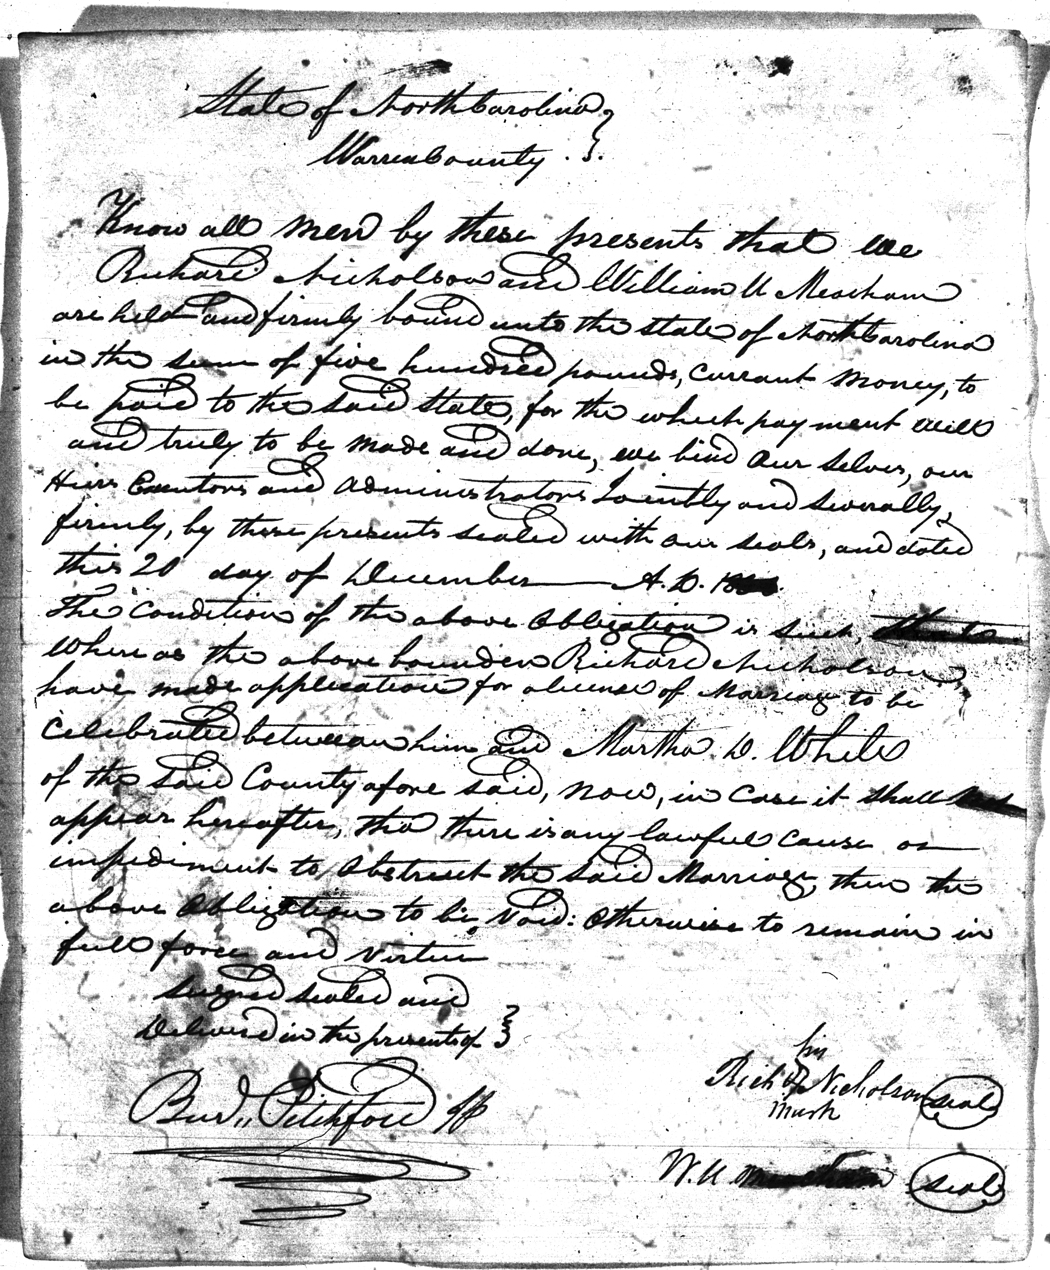 State of North Carolina
Warren County
Know all men by these presents that we
Richard Nicholson and William U Meacham
are held and firmly bound unto the state of North Carolina
in the sum of five hundred pounds, currant money, to
be paid to the said State, for the which payment well
and truly to be made and done, we bind our selves, our
Hiers Exeutors and administrators Jointly and severally,
firmly, by these presents sealed with our seals, and dated
this 20 day of December A. D.
The condition of the above obligation is such,
Where as the above bounden Richard Nicholson,
have made application for a license of Marriag to be
Celebrated between him and Martha D. White
of the said County afore said, now, in case it shall
appear hereafter, tha there is any lawful cause or
impediment to obstruct the said Marriage, then the
above obligation to be, void: otherwise to remain in
full force and virtue
signed sealed and
Delivered in the presents of
his
Rich Nicholson seal
mark
Burd,, Pitchford JP
W. U Meacham seal